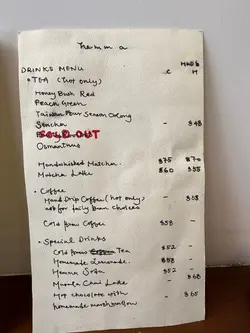 hermma
HKD$
DRINKS MENU C H
• TEA (hot only)
Honey Bush Red
Peach Green
Taiwan Four Season Oolong
Sencha - $48
SOLD OUT
Osmanthus
Handwhisked Matcha $75 $70
Matcha Latte $60 $55
• Coffee
Hand Drip Coffee (hot only) - $58
ask for daily bean choices
Cold Brew Coffee $58 -
• Special Drinks
Cold Brew Tea $52 -
Homemade Lemonade $58 -
Soda $52 -
Masala Chai Latte - $68
Hot chocolate with - $65
homemade marshmallow